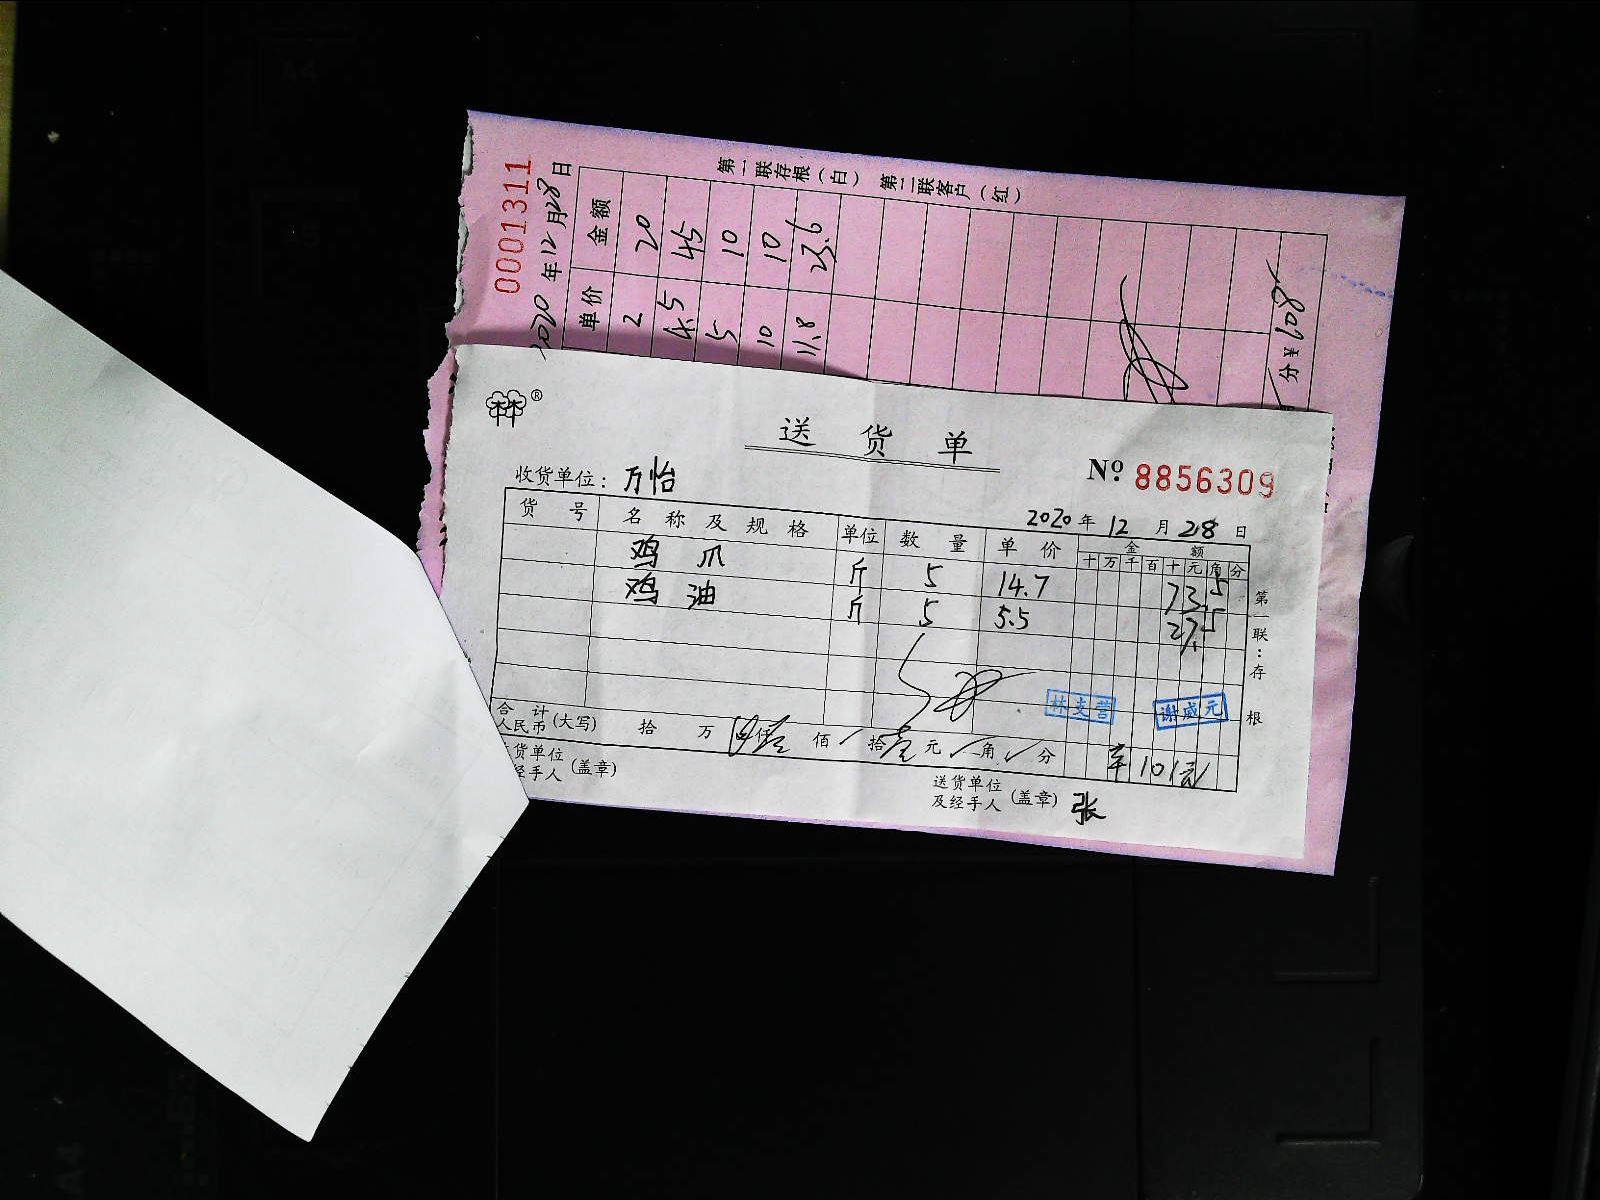 送 货 单
No 8856309
收货单位： 万怡
2020 年 12 月 28 日
货 号 名 称 及 规 格 单位 数 量 单 价 金 额
十 万 千 百 十 元 角 分
鸡 爪 斤 5 14.7 73.5
鸡 油 斤 5 5.5 27.5
林支营 谢威元
合 计
人民币 (大写) 拾 万 仟 佰 拾 元 角 分 101元
货单位
经手人 (盖章)
送货单位
及经手人 (盖章) 张
第一联：存根
0001311
2020 年 12 月 28 日
单价 金额
2 20
4.5 45
5 10
10 10
11.8 23.6
分 ¥
第一联存根（白） 第二联客户（红）